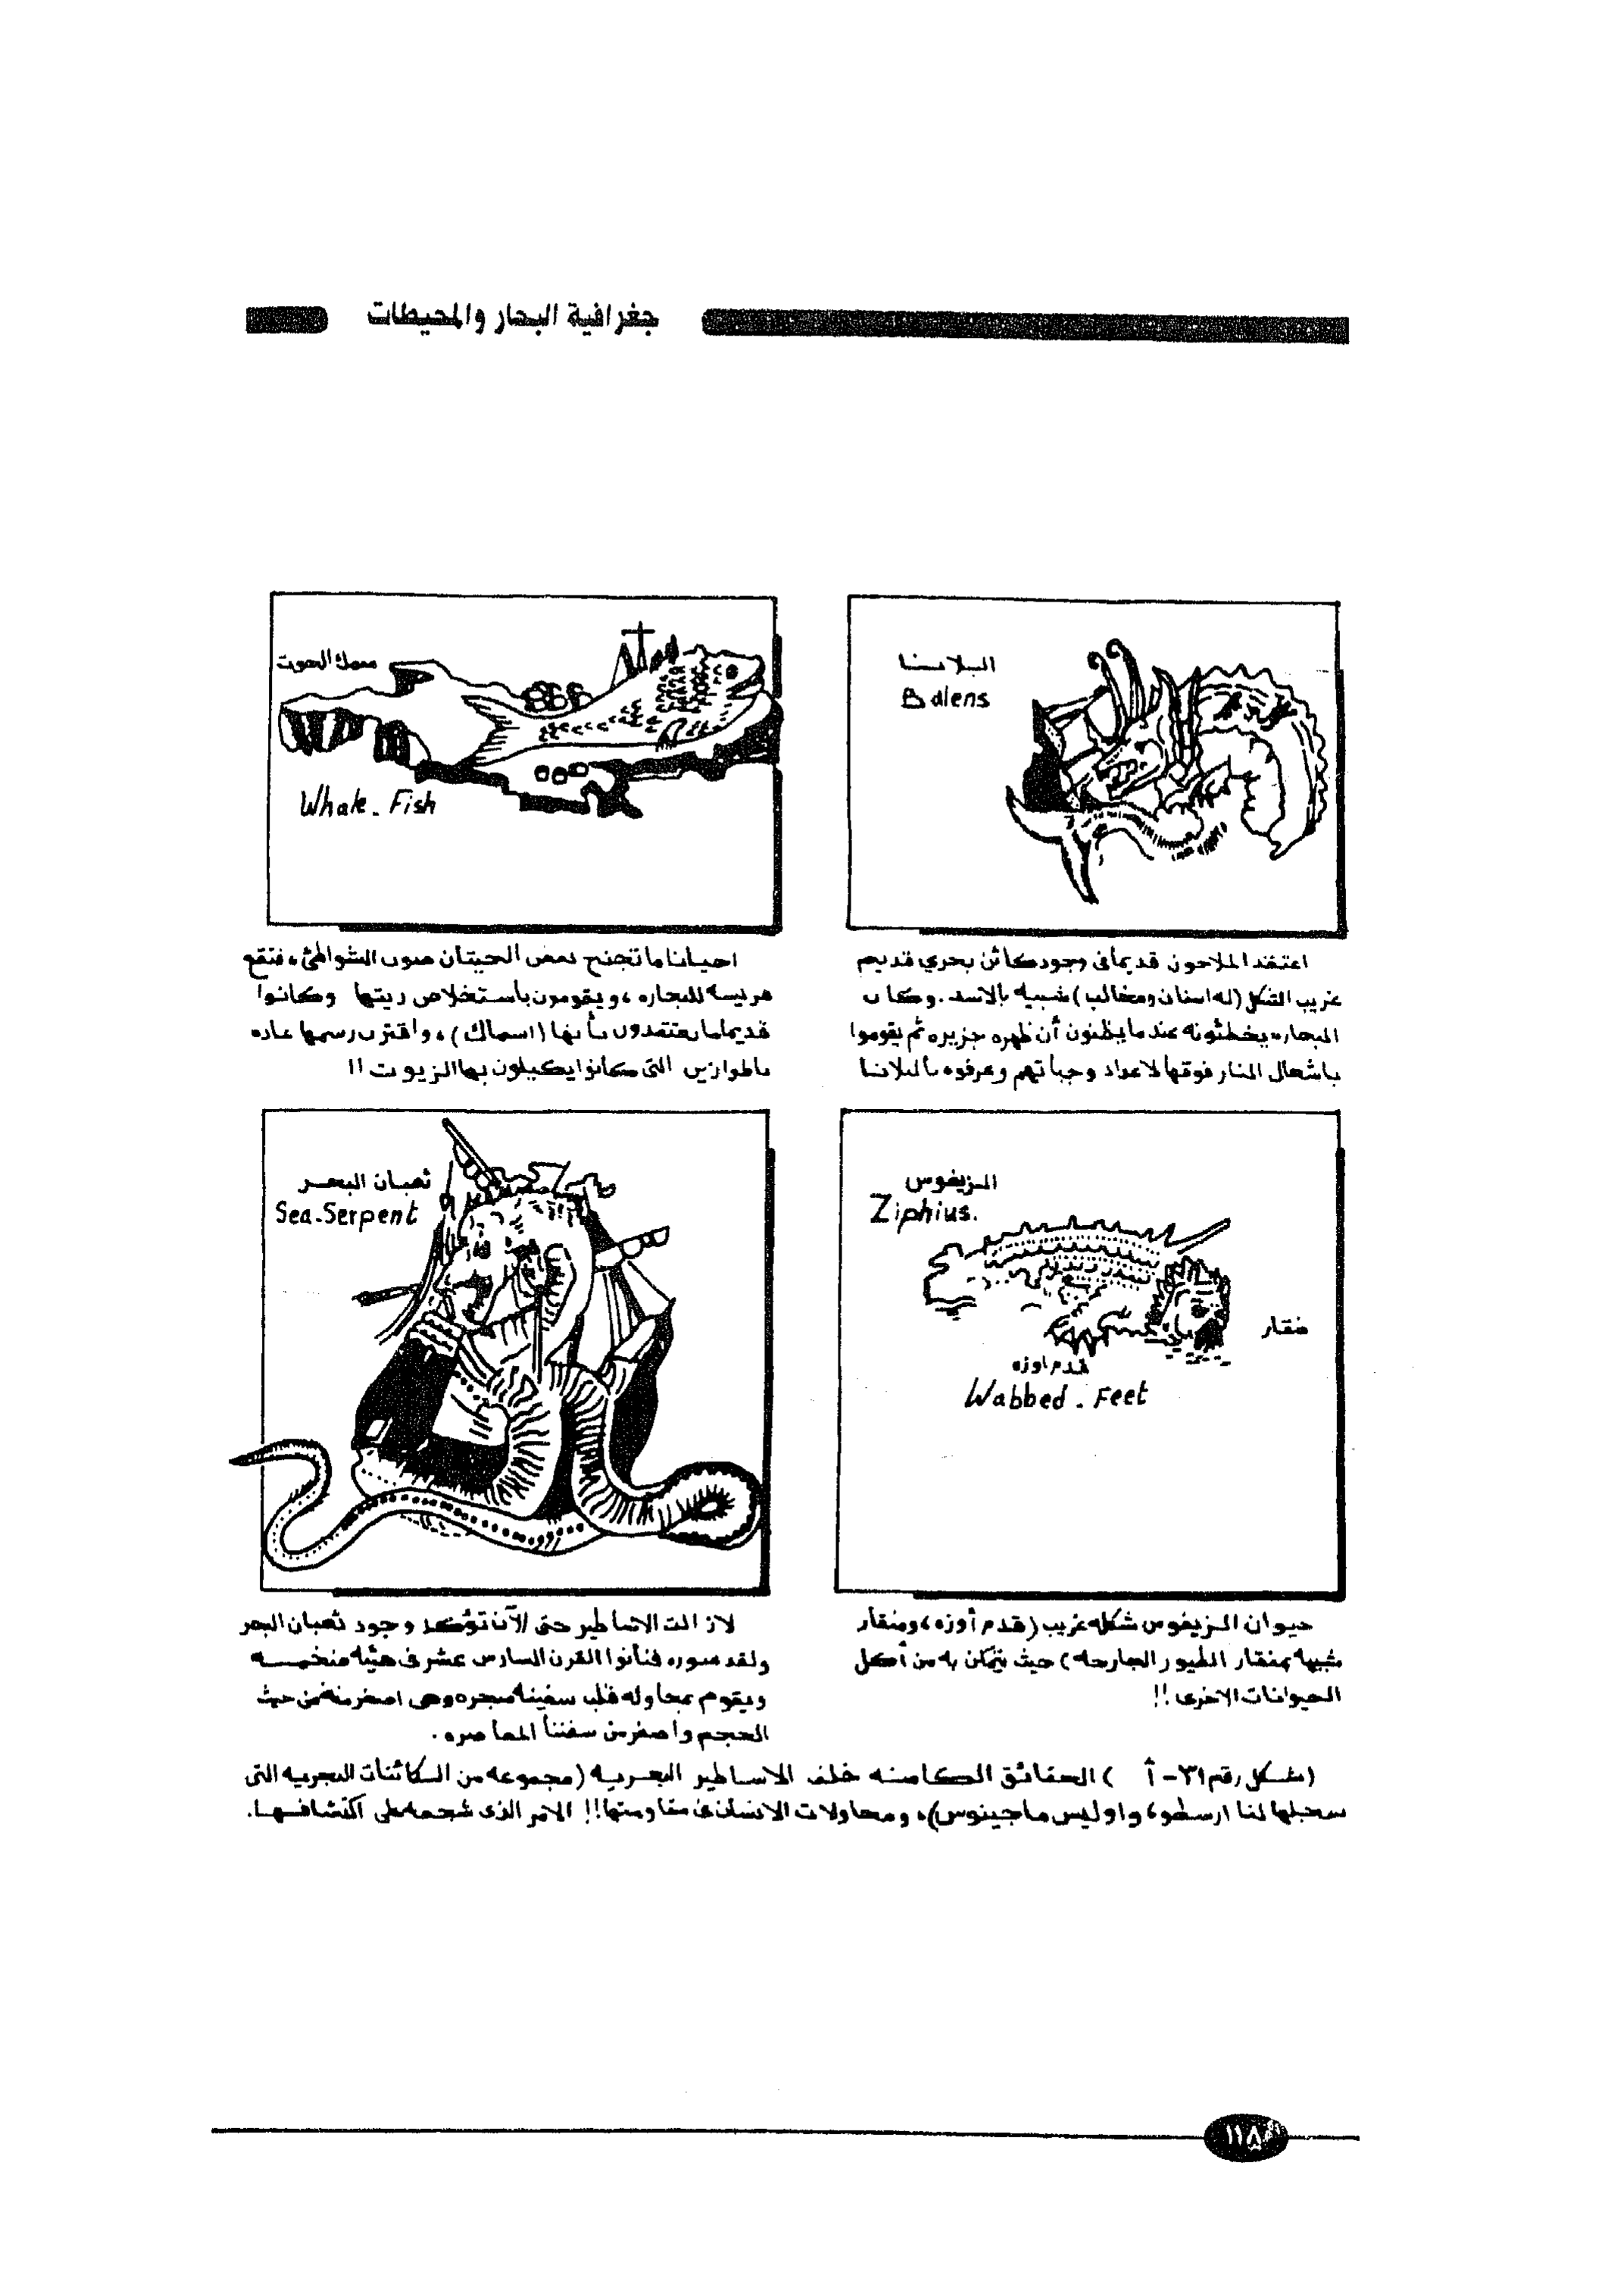 جغرافية البحار والمحيطات
البلاسنا
Balens
اعتقد الملاحون قديما فى وجود كائن بحري قديم
غريب الشكل (له اسنان ومخالب) شبيه بالاسد. وكان
البحاره يخطئونه عندما يظنون أن ظهره جزيره ثم يقوموا
باشعال النار فوقها لاعداد وجباتهم وعرفوه بالبلانا
سمك الحوت
Whale - Fish
احيانا ما تجنح بعض الحيتان صوب الشواطئ، فتقع
فريسه للبحاره، ويقومون بأستخلاص زيتها وكانوا
قديما ما يعتقدون بأنها (اسماك)، واقترن رسمها عاده
باطوازين التى كانوا يكيلون بها الزيوت !!
الزيفوس
Ziphius.
منقار
قدم اوزه
Wabbed - Feet
حيوان الزيفوس شكله غريب (قدم أوزه، ومنقار
شبيهه بمنقار الطيور الجارحه) حيث يتمكن به من أكل
الحيوانات الاخرى !!
ثعبان البحر
Sea-Serpent
لازالت الاساطير حتى الآن تؤكد وجود ثعبان البحر
ولقد صوره فنانوا القرن السادس عشر فى هيئه ضخمه
ويقوم بمحاوله قلب سفينه مبحره وهى اصغر منه من حيث
الحجم واصغر من سفننا المعاصره .
(شكل رقم ٣١ - أ ) الحقائق الكامنه خلف الاساطير البحريه (مجموعه من الكائنات البحريه التى
سجلها لنا ارسطو، واوليس ماجينوس)، ومحاولات الانسان فى مقاومتها!! الامر الذى شجعه على اكتشافها.
١١٨